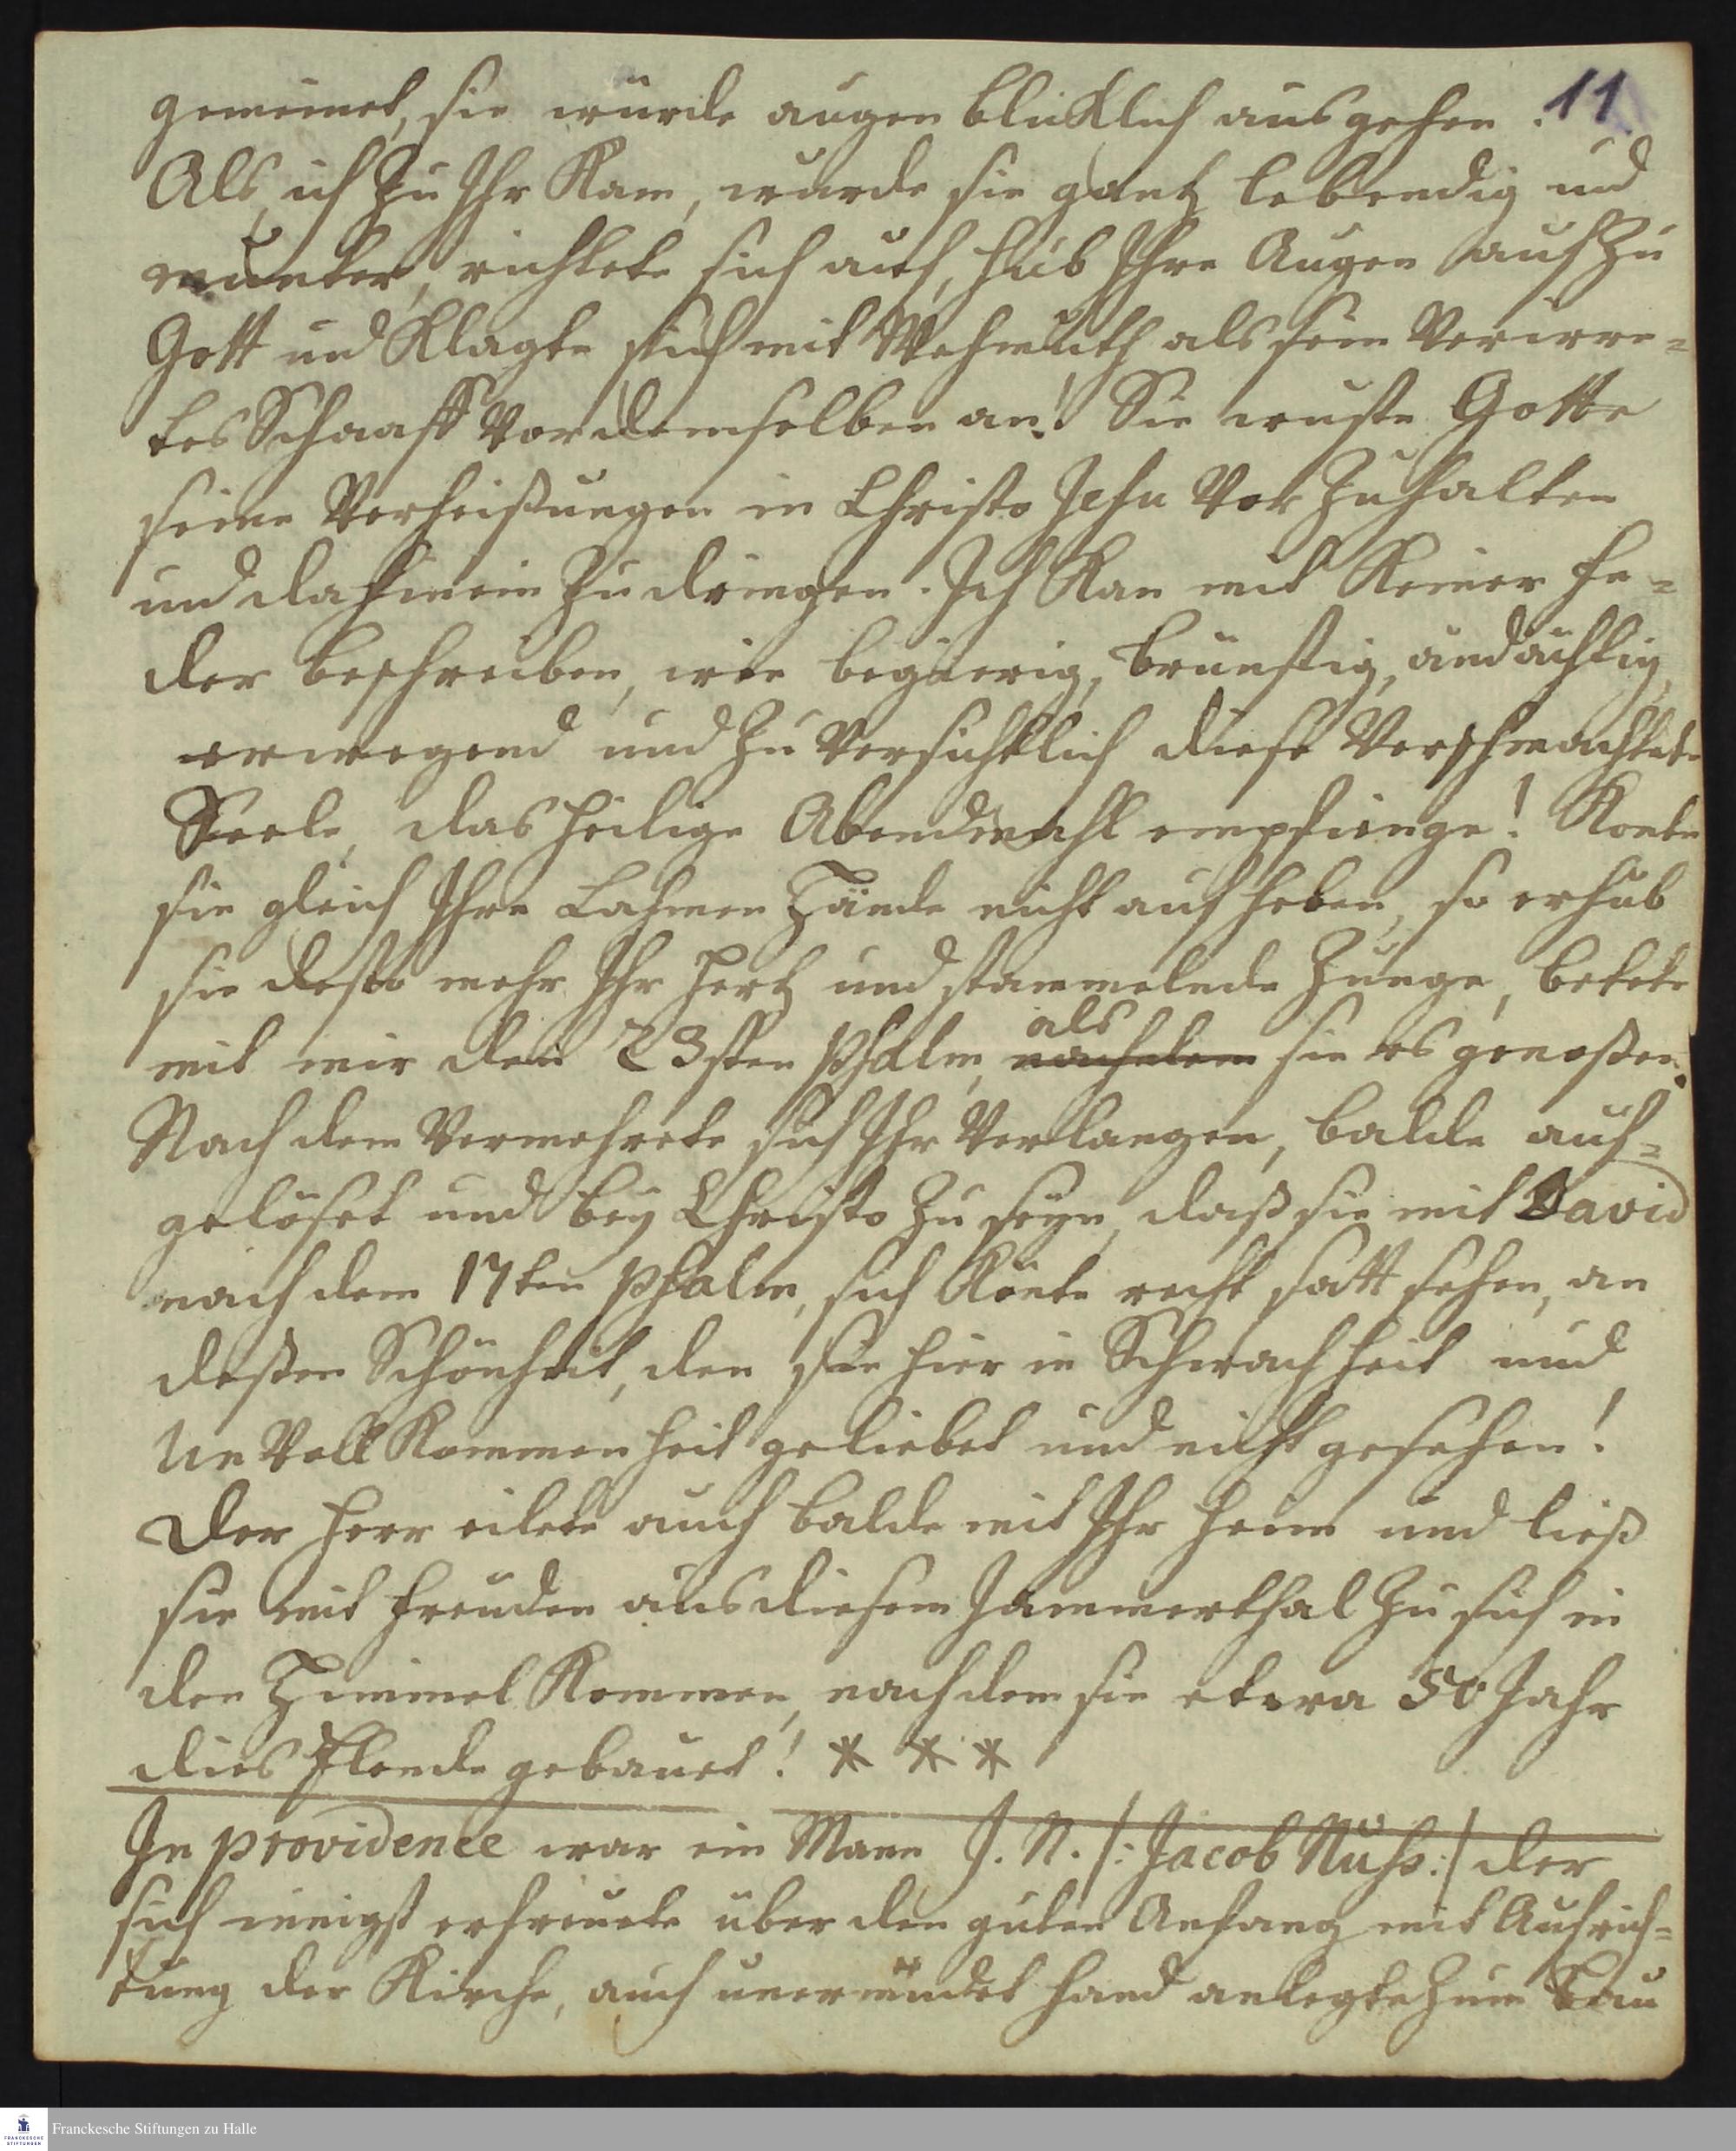 gemeinet, sie würde augenblicklich ausgehen. 11
Als ich zu Ihr Kam, wurde sie gantz lebendig und
munter, richtete sich auf, hub Ihre Augen auf zu
Gott und Klagte sich mit Wehmuth als sein Verirre=
tes Schaaff Vor demselben an! Sie wuste Gotte
seine Verheißungen in Christo Jesu Vor zuhalten
und da hinein zu dringen. Ich Kan mit Keiner Fe=
der beschreiben, wie begierig, brünstig, andächtig,
erwegend und zu Versichtlich diese Verschmachtete
Seele, das heilige Abendmahl empfienge! Konte
sie gleich Ihre Lahmen Hände nicht aufheben, so erhub
sie desto mehr Ihr Hertz und stammelnde Zunge, betete
mit mir den 23sten Psalm, nachdem als sie es genoßen.
Nach dem Vermehrete sich Ihr Verlangen, balde auf=
gelöset und bey Christo zu seyn, daß sie mit David
nach dem 17ten Psalm, sich Könte recht satt sehen, an
deßen Schönheit, den sie hier in Schwachheit und
Un Voll Kommenheit geliebet und nicht gesehen!
Der Herr eilete auch balde mit Ihr heim und ließ
sie mit Freuden aus diesem Jammerthal zu sich in
den Himmel Kommen, nachdem sie etwa 50 Jahr
dies Elende gebauet! * * *
In providence war ein Mann J. N. /: Jacob Nuss :/ der
sich innigst erfreuete über den guten Anfang mit Aufrich=
tung der Kirche, auch unermüdet Hand anlegte zum Bau
Franckesche Stiftungen zu Halle
FRANCKESCHE
STIFTUNGEN